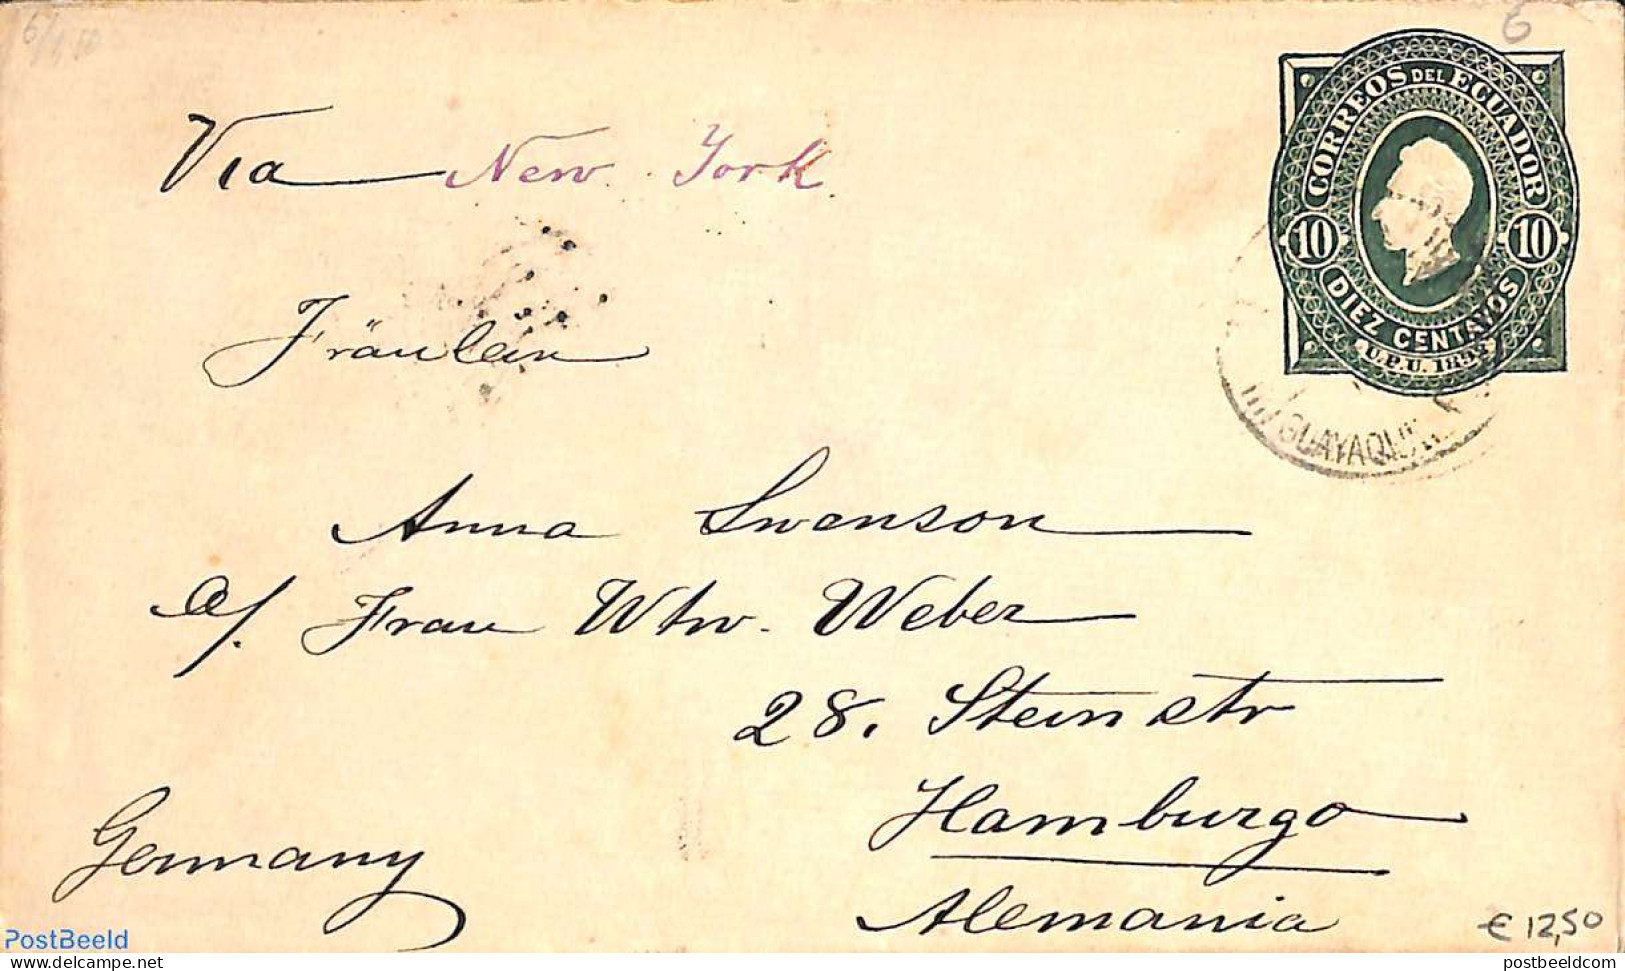 6
CORREOS DEL ECUADOR
10 10
DIEZ CENTAVOS
U.P.U.
GUAYAQUIL
Via New York
Fräulein
Anna Swenson
a/. Frau Wtw. Weber
28. Steinstr
Hamburgo
Germany
Alemania
€ 12,50
PostBeeld
postbeeldcom